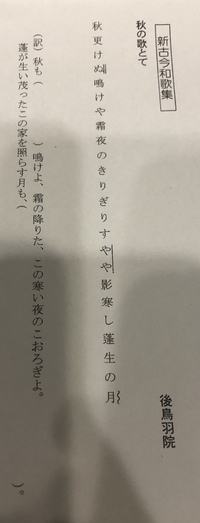 新古今和歌集
秋の歌とて
後鳥羽院
秋更けぬ鳴けや霜夜のきりぎりすやや影寒し蓬生の月
(訳)秋も( )鳴けよ、霜の降りた、この寒い夜のこおろぎよ。
蓬が生い茂ったこの家を照らす月も、( )。